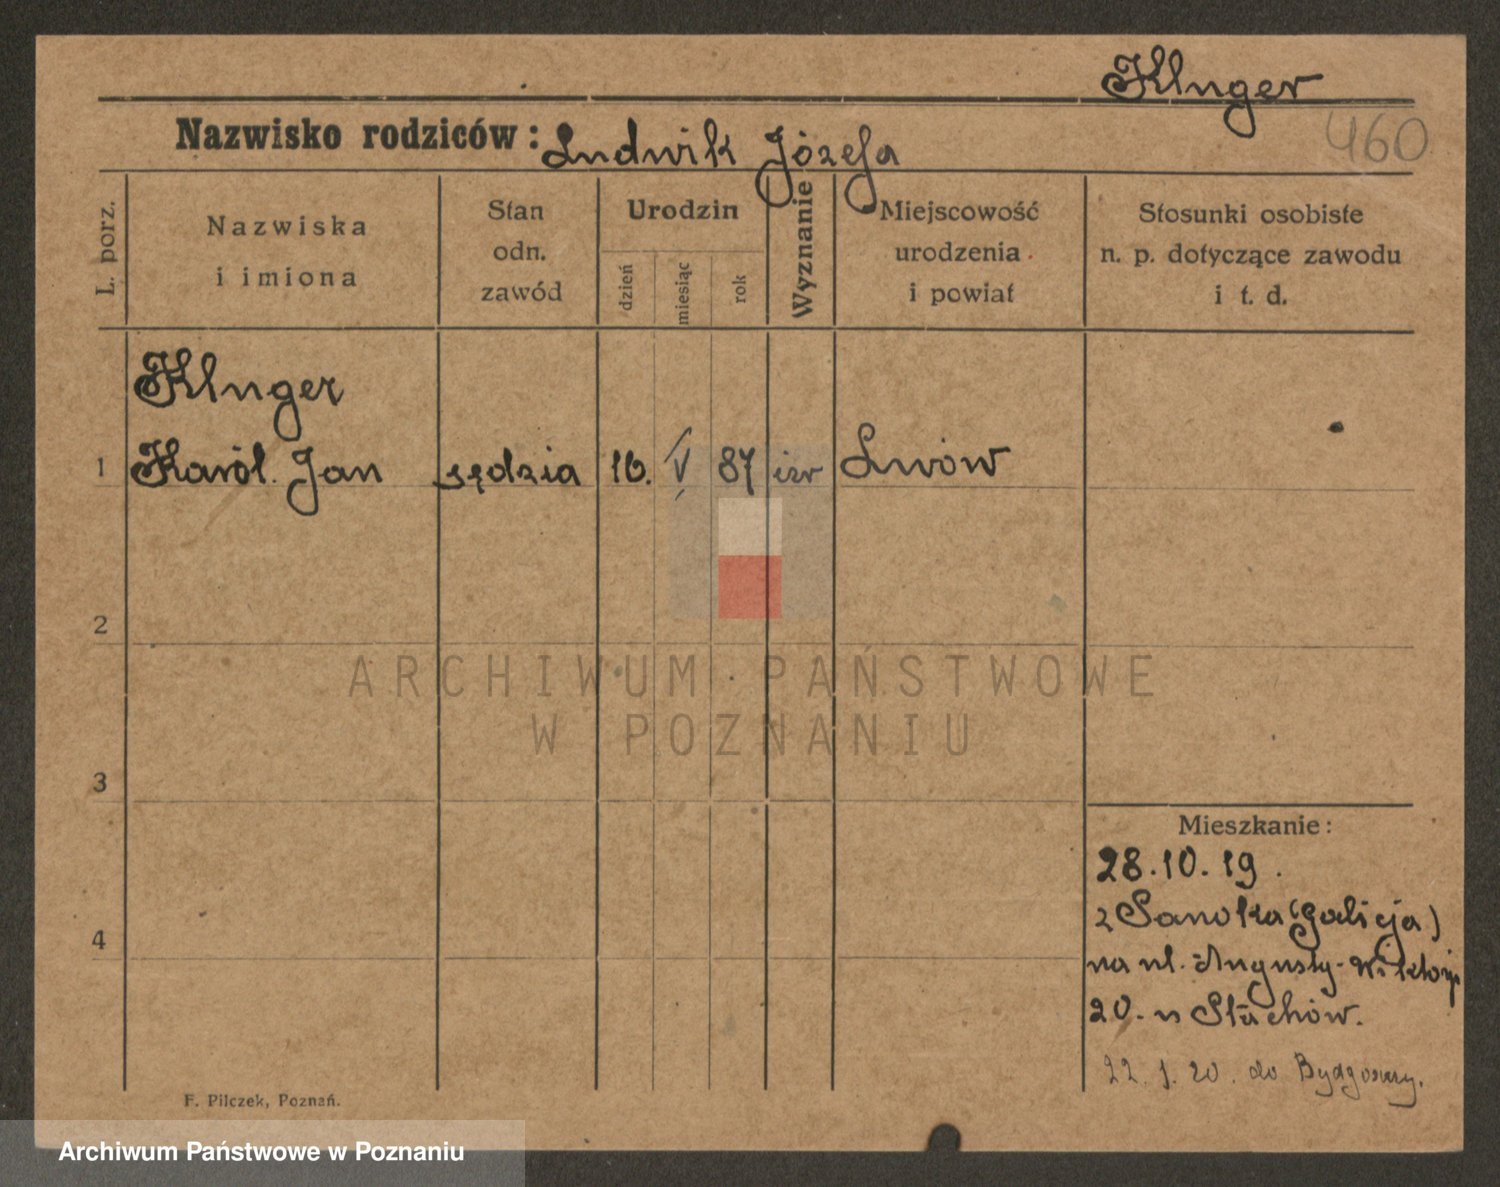 Kluger
460
Nazwisko rodziców: Ludwik Józefa
L. porz.
Nazwiska
i imiona
Stan
odn.
zawód
Urodzin
dzień
miesiąc
rok
Wyznanie
Miejscowość
urodzenia
i powiat
Stosunki osobiste
n. p. dotyczące zawodu
i t. d.
Kluger
1 Karól Jan sędzia 10. V 87 izr Lwów
2
3
4
Mieszkanie:
28.10.19.
z Sanoka (Galicja)
na ul. Augusty-Wiktorji
20. u Stachów.
22. 1. 20. do Bydgoszczy.
F. Pilczek, Poznań.
ARCHIWUM PAŃSTWOWE
W POZNANIU
Archiwum Państwowe w Poznaniu